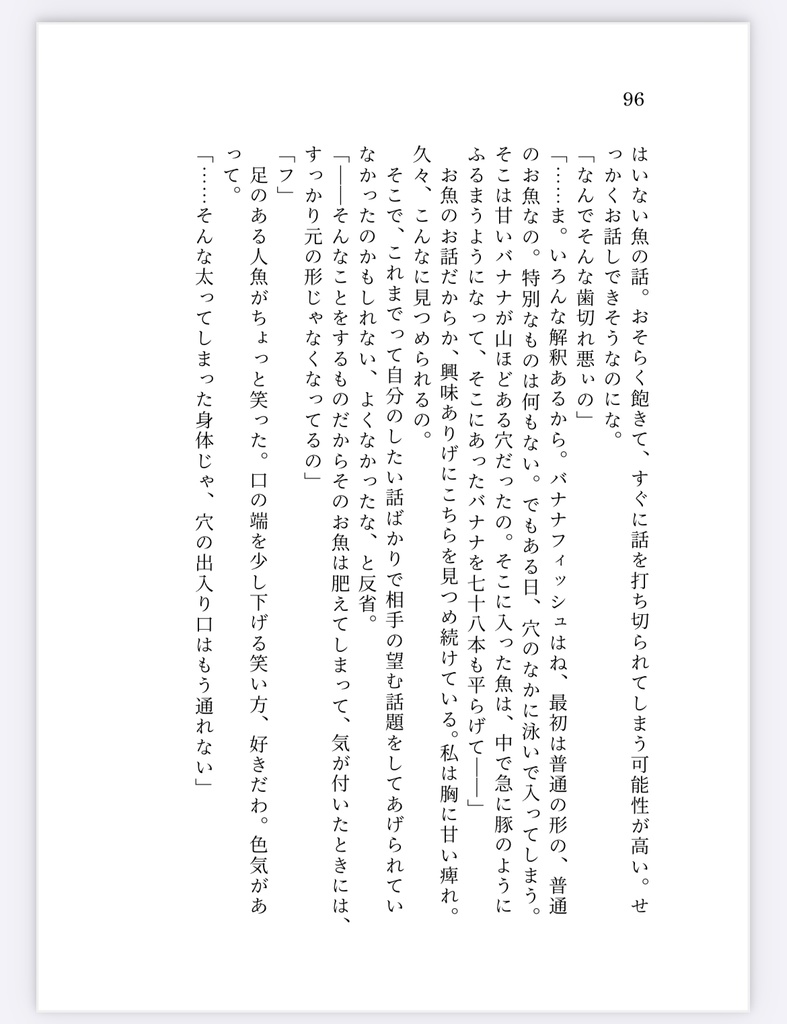 96
はいない魚の話。おそらく飽きて、すぐに話を打ち切られてしまう可能性が高い。せ
っかくお話しできそうなのにな。
「なんでそんな歯切れ悪ぃの」
「……ま。いろんな解釈あるから。バナナフィッシュはね、最初は普通の形の、普通
のお魚なの。特別なものは何もない。でもある日、穴のなかに泳いで入ってしまう。
そこは甘いバナナが山ほどある穴だったの。そこに入った魚は、中で急に豚のように
ふるまうようになって、そこにあったバナナを七十八本も平らげて――」
お魚のお話だからか、興味ありげにこちらを見つめ続けている。私は胸に甘い痺れ。
久々、こんなに見つめられるの。
そこで、これまでって自分のしたい話ばかりで相手の望む話題をしてあげられてい
なかったのかもしれない、よくなかったな、と反省。
「――そんなことをするものだからそのお魚は肥えてしまって、気が付いたときには、
すっかり元の形じゃなくなってるの」
「フ」
足のある人魚がちょっと笑った。口の端を少し下げる笑い方、好きだわ。色気があ
って。
「……そんな太ってしまった身体じゃ、穴の出入り口はもう通れない」